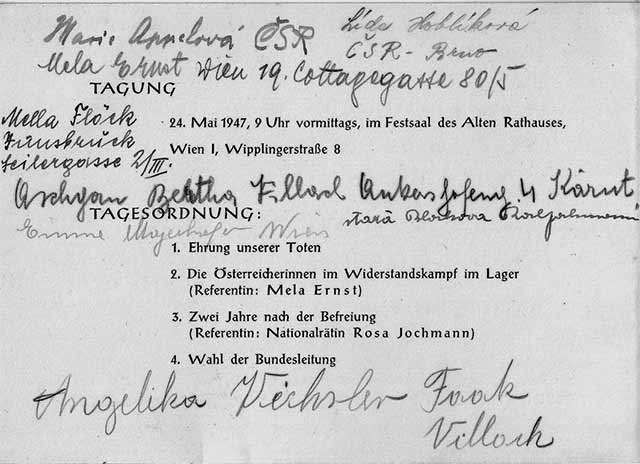 Marie Appelová ČSR
Lída Hoblíková
ČSR - Brno
Mela Ernst Wien 19. Cottagegasse 80/5
TAGUNG
Mella Flöck
Innsbruck
Seilergasse 2/III.
24. Mai 1947, 9 Uhr vormittags, im Festsaal des Alten Rathauses,
Wien I, Wipplingerstraße 8
Bertha Villach 4 Kärnt
TAGESORDNUNG:
stará
Wien
1. Ehrung unserer Toten
2. Die Österreicherinnen im Widerstandskampf im Lager
(Referentin: Mela Ernst)
3. Zwei Jahre nach der Befreiung
(Referentin: Nationalrätin Rosa Jochmann)
4. Wahl der Bundesleitung
Angelika Vechsler Faak
Villach